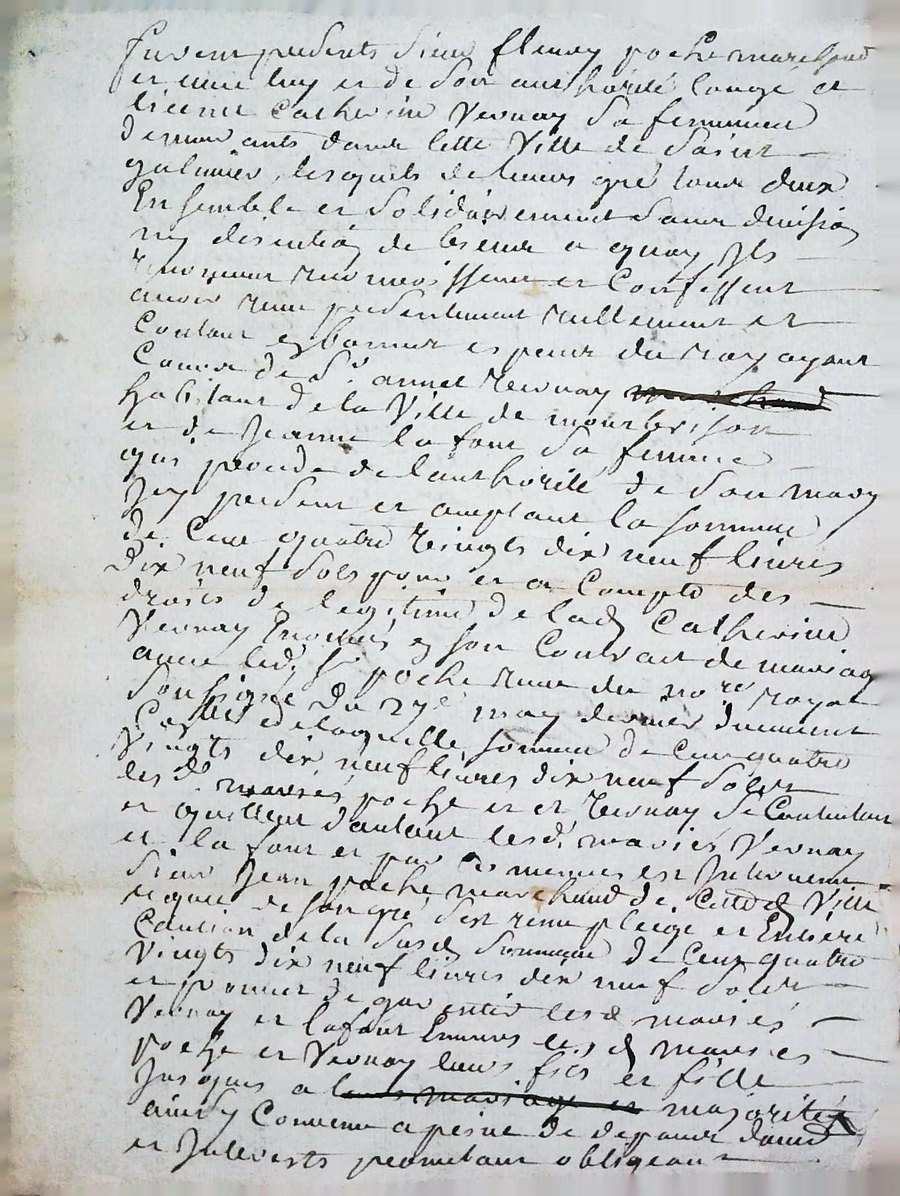 furent presents sieur fleury poche marchand
et avec luy et de son authorité longé et
licencé Catherine Vernay sa femme
demeurants dans cette Ville de Saint
galmier, lesquels de leurs gré tous deux
Ensemble et solidairement sans division
ny discution de biens a quoy Ils
renoncent reconnoissent et Confessent
avoir reçu presentement reellement et
Contant en bonnes especes du roy ayant
Cours de Sr. annet Vernay marchand
habitant de la Ville de montbrison
et de Jeanne la font sa femme
qui procede de l'authorité de son mary
Icy present et acceptant la somme
de Cent quatre vingts dix neuf livres
dix neuf sols pour et a Compte des
droits de legitime de lad Catherine
Vernay Enoncés en son Contract de mariage
avec led. Sr poche reçu du nore royal
soussigné du 27e may dernier duement
de laquelle somme de Cent quatre
Vingts dix neuf livres dix neuf sols
les d. mariés poche et Vernay se Contentent
et quittent d'autant lesd. mariés Vernay
et la font et par Ces mesmes est Intervenu
sieur Jean poche marchand de Cette d Ville
lequel de son gré s'est rendu pleige et
Caution de la susd somme de Cent quatre
Vingts dix neuf livres dix neuf sols
et promet de garentir lesd mariés
Vernay et lafont Envers lesd mariés
poche et Vernay leurs fils et fille
Jusques a leur mariage et majorité
ainsy Convenu a peine de depens dom
et Interests promettant obligeant